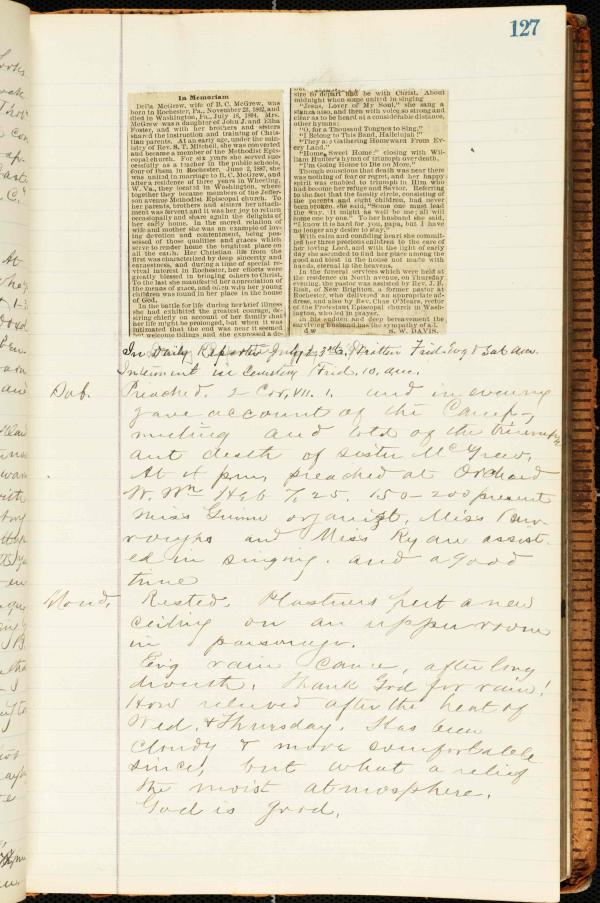 127
In Memoriam
Della McGrew, wife of B. C. McGrew, was
born in Rochester, Pa., November 23, 1862, and
died in Washington, Pa., July 18, 1894. Mrs.
McGrew was a daughter of John J. and Eliza
Foster, and with her brothers and sisters
shared the instruction and training of Chris-
tian parents. At an early age, under the min-
istry of Rev. S. T. Mitchell, she was converted
and became a member of the Methodist Epis-
copal church. For six years she served suc-
cessfully as a teacher in the public schools,
four of them in Rochester. June 2, 1887, she
was united in marriage to B. C. McGrew, and
after a residence of three years in Wheeling,
W. Va., they located in Washington, where
together they became members of the Jeffer-
son avenue Methodist Episcopal church. To
her parents, brothers and sisters her attach-
ment was fervent and it was her joy to return
occasionally and share again the delights of
her early home. In the sacred relation of
wife and mother she was an example of lov-
ing devotion and contentment, being pos-
sessed of those qualities and graces which
serve to render home the brightest place on
all the earth. Her Christian life from the
first was characterized by deep sincerity and
earnestness, and during a time of special re-
vival interest in Rochester, her efforts were
greatly blessed in bringing others to Christ.
To the last she manifested her appreciation of
the means of grace, and often with her young
children was found in her place in the house
of God.
In the battle for life during her brief illness
she had exhibited the greatest courage, de-
siring chiefly on account of her family that
her life might be prolonged, but when it was
intimated that the end was near it seemed
welcome tidings and she expressed a de-
sire to depart and be with Christ. About
midnight when some united in singing
"Jesus, Lover of My Soul," she sang a
stanza also, and then with voice so strong and
clear as to be heard at a considerable distance,
other hymns:
"O, for a Thousand Tongues to Sing,"
"I Belong to This Band, Hallelujah!"
"They are Gathering Homeward From Ev-
ery Land,"
"Home, Sweet Home;" closing with Wil-
liam Hunter's hymn of triumph over death,
"I'm Going Home to Die no More."
Though conscious that death was near there
was nothing of fear or regret, and her happy
spirit was enabled to triumph in Him who
had become her refuge and Savior. Referring
to the fact that the family circle, consisting of
the parents and eight children, had never
been broken, she said, "Some one must lead
the way. It might as well be me; all will
come one by one." To her husband she said,
"I know it is hard for you, papa, but I have
no longer any desire to stay."
With calm and confiding heart she commit-
ted her three precious children to the care of
her loving Lord, and with the light of early
day she ascended to find her place among the
good and blest in the house not made with
hands, eternal in the heavens.
In the funeral services which were held at
the residence on North avenue, on Thursday
evening, the pastor was assisted by Rev. J. R.
Rish, of New Brighton, a former pastor at
Rochester, who delivered an appropriate ad-
dress, and also by Rev. Chas O'Meara, rector
of the Protestant Episcopal church in Wash-
ington, who led in prayer.
In his sudden and deep bereavement the
surviving husband has the sympathy of all.
d w S. W. DAVIS.
In Daily Reporter July Written Frid. Evg & Sat. a.m.
Interment in Cemetery Frid. 10. a.m.
Sab. Preached. 2 Cor. VII. 1. and in evening
gave account of the Camp-
meeting and told of the triumph-
ant death of sister McGrew.
At 4 p.m. preached at Orchard
Heb 7/25. 150-200 present
Miss organist. Miss Bur-
roughs and Miss Ryan assist-
ed in singing. and a good
time
Mond. Rested. Plasterers put a new
ceiling on an upper room
in parsonage.
Evg rain came, after long
drouth. Thank God for rain!
How relieved after the heat of
Wed. & Thursday. Has been
cloudy & more comfortable
since, but what a relief
the moist atmosphere.
God is good.